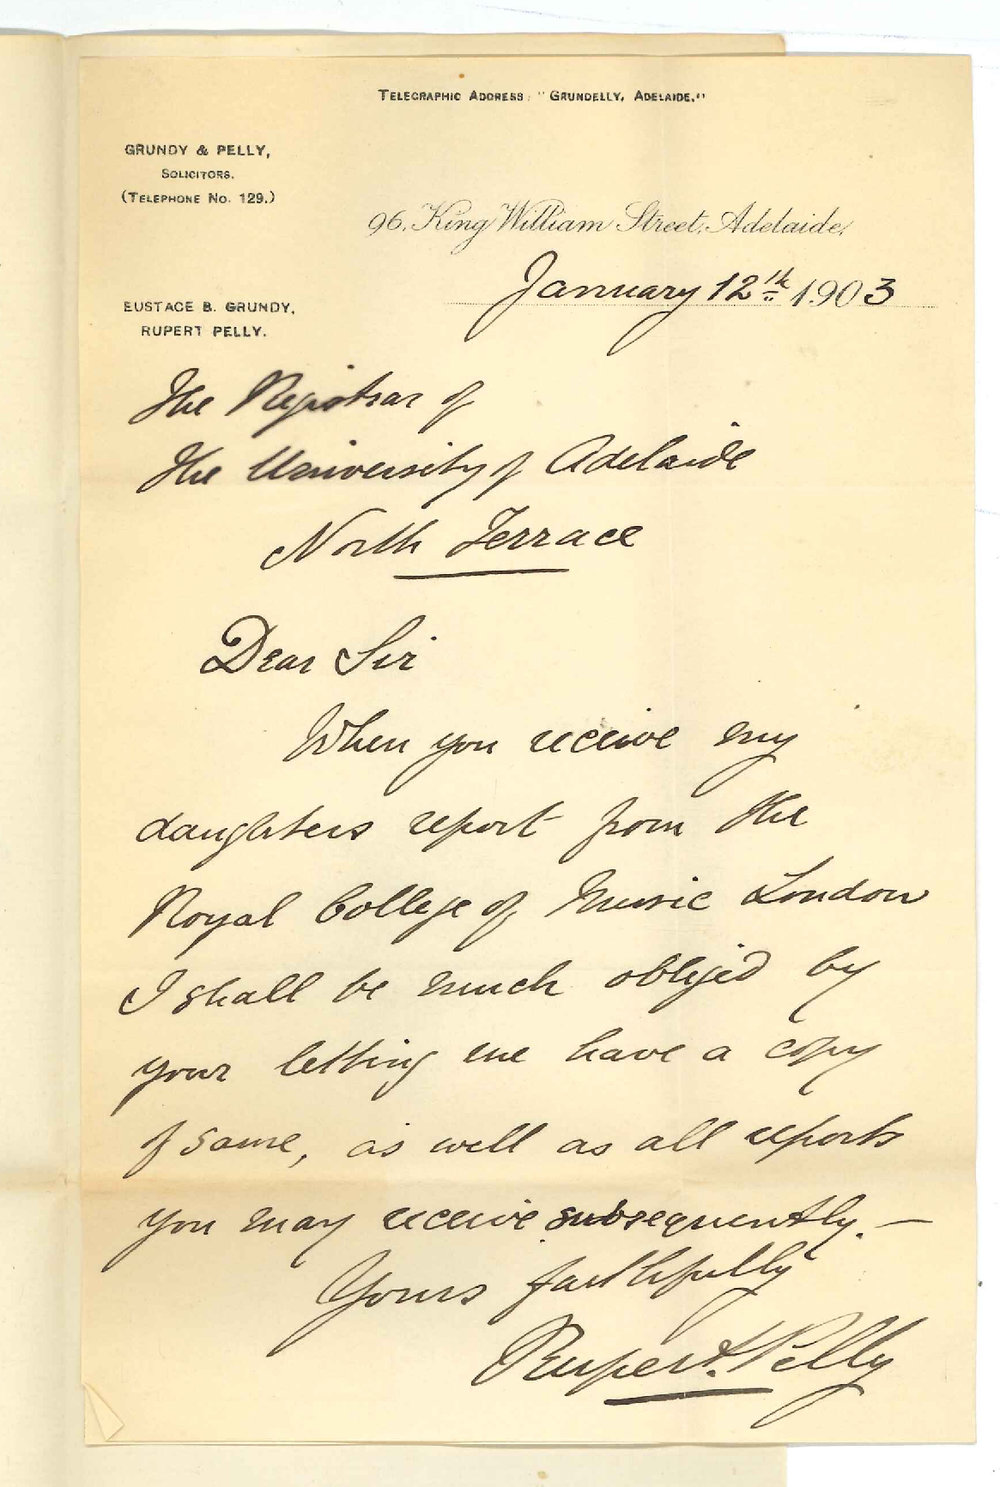 TELEGRAPHIC ADDRESS: "GRUNDELLY, ADELAIDE."
GRUNDY & PELLY,
SOLICITORS.
(TELEPHONE NO. 129.)
96, King William Street, Adelaide,
January 12th 1903
EUSTACE B. GRUNDY,
RUPERT PELLY.
The Registrar of
The University of Adelaide
North Terrace
Dear Sir
When you receive my
daughters report from the
Royal College of Music London
I shall be much obliged by
your letting me have a copy
of same, as well as all reports
you may receive subsequently. —
Yours faithfully
Rupert Pelly